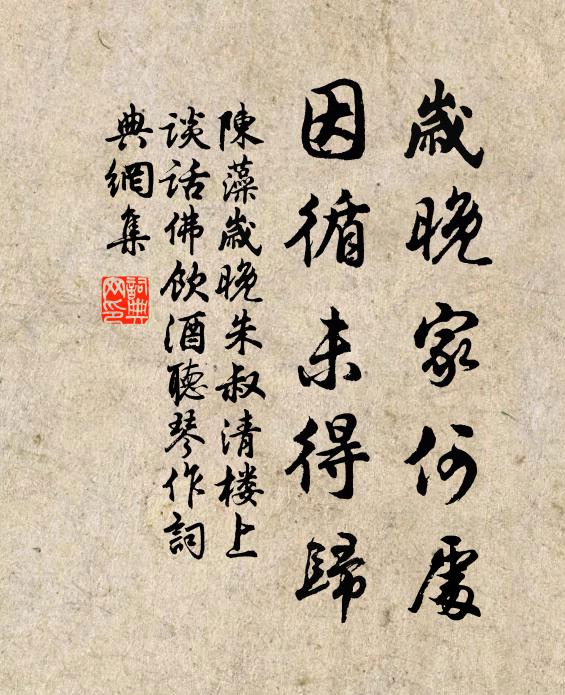 歲晚家何處
因循未得歸
陳藻歲晚朱叔清楼上
談話佛飲酒聽琴作詞
典網集
詞典网印